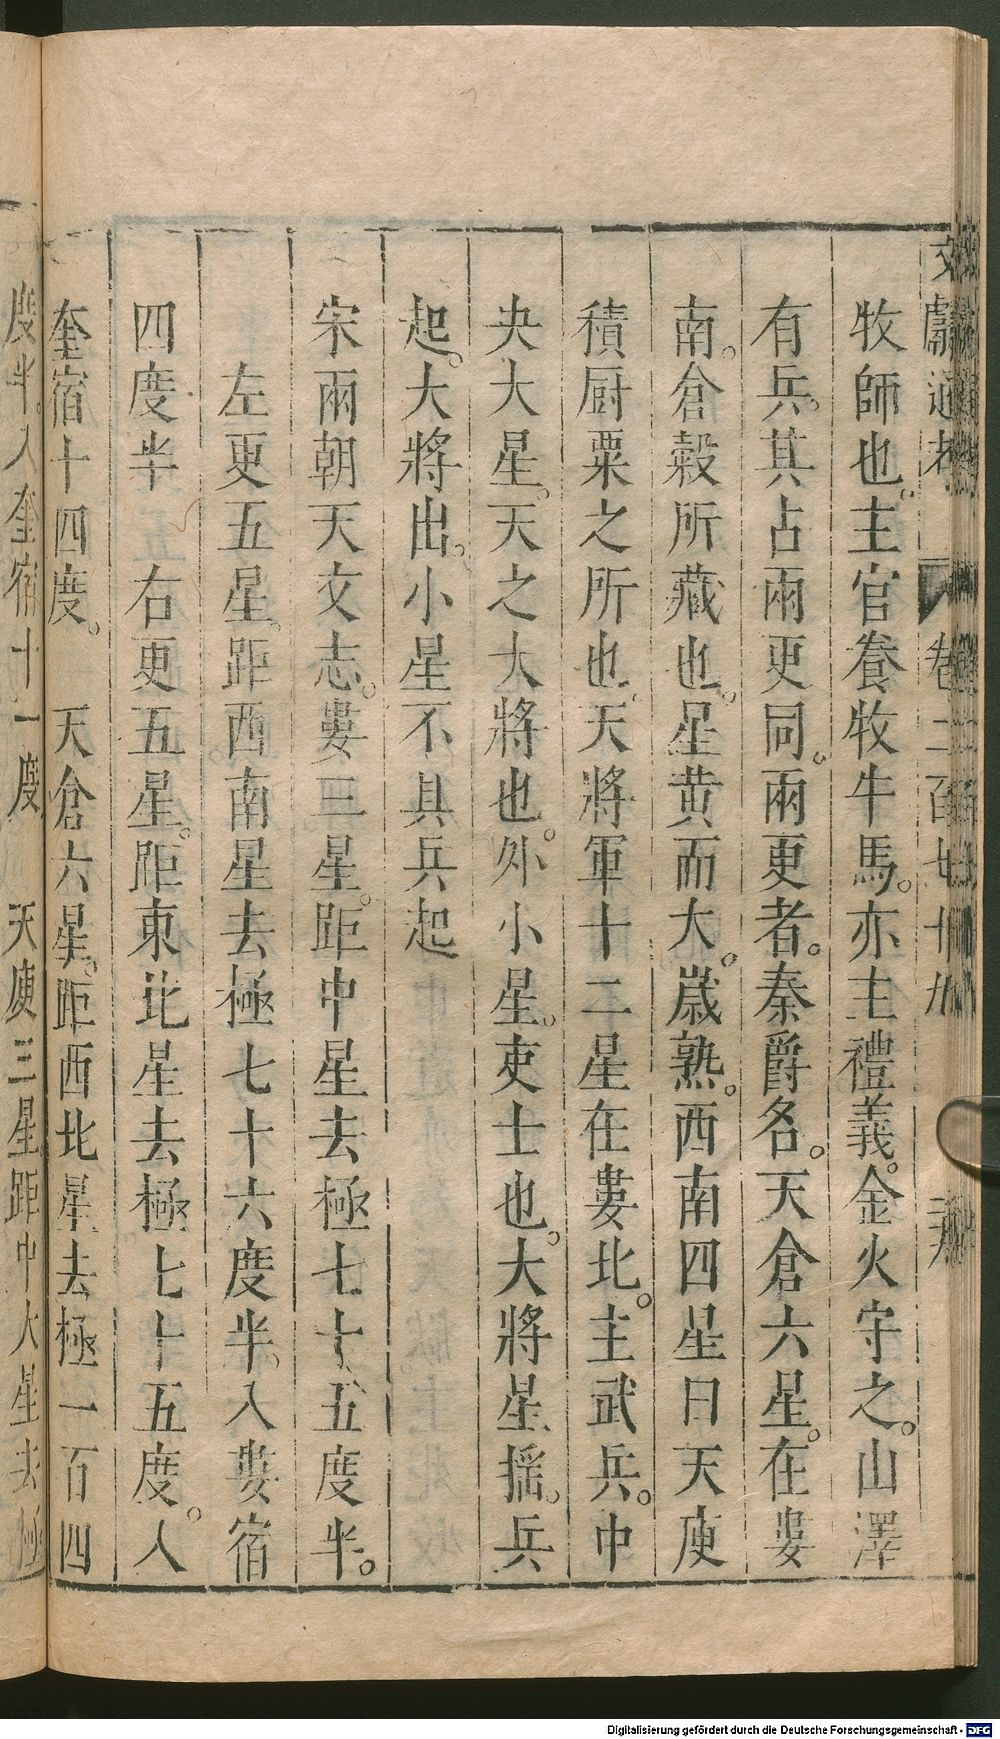 文獻通考 卷二百七十九
牧師也。主官養牧牛馬。亦主禮義。金火守之。山澤
有兵。其占兩更同。兩更者。秦爵名。天倉六星。在婁
南。倉穀所藏也。星黃而大。歲熟。西南四星曰天庾
積厨粟之所也。天將軍十二星在婁北。主武兵。中
央大星。天之大將也。外小星。吏士也。大將星搖。兵
起。大將出。小星不具兵起
宋兩朝天文志。婁三星。距中星去極七十五度半。
左更五星。距西南星去極七十六度半。入婁宿
四度半 右更五星。距東北星去極七十五度。入
奎宿十四度。 天倉六星。距西北星去極一百四
度半。入奎宿十一度 天庾三星距中大星去極
Digitalisierung gefördert durch die Deutsche Forschungsgemeinschaft - DFG